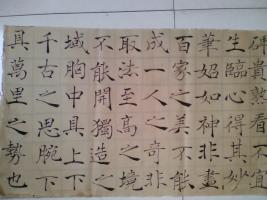 碑貴熟看不宜
生臨心得其妙
筆始如神非盡
百家之美不能
成一人之奇非
取法至高之境
不能開獨造之
域胸中具上下
千古之思腕下
具萬里之勢也